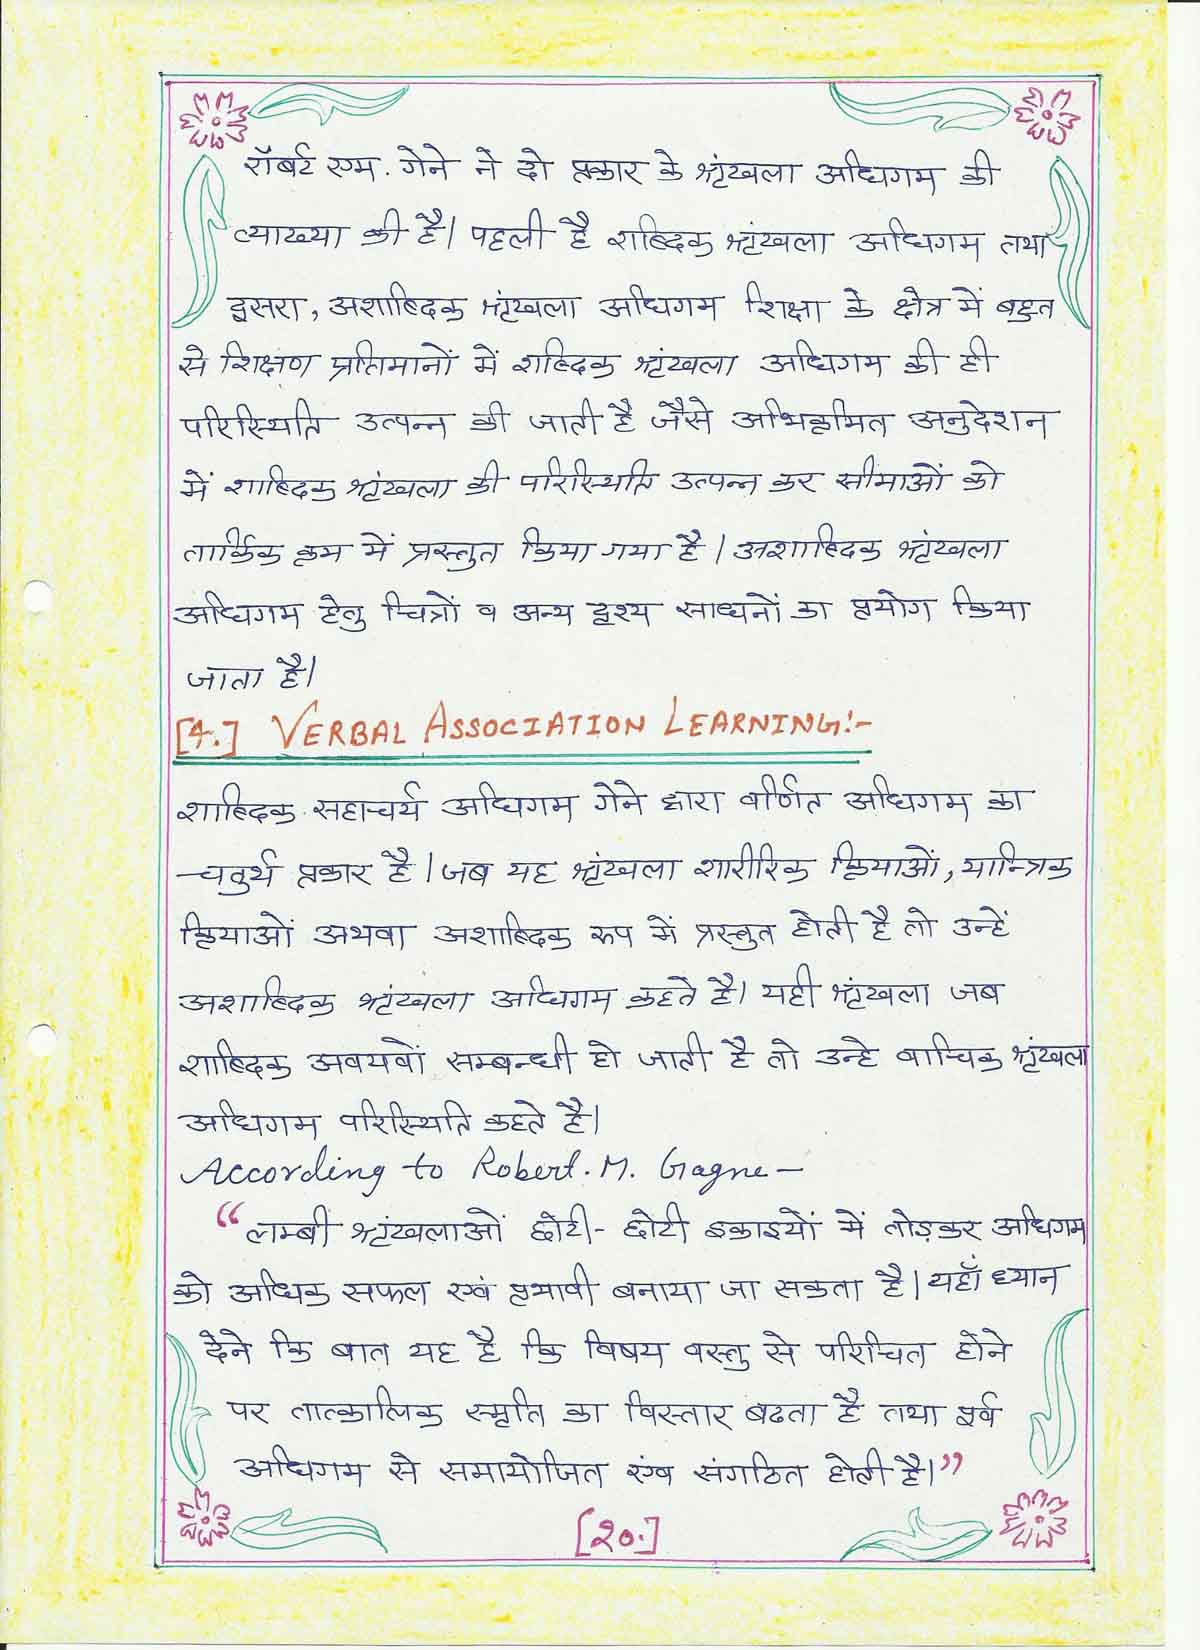 रॉबर्ट एम. गेने ने दो प्रकार के श्रृंखला अधिगम की
व्याख्या की है। पहली है शाब्दिक श्रृंखला अधिगम तथा
दूसरा, अशाब्दिक श्रृंखला अधिगम शिक्षा के क्षेत्र में बहुत
से शिक्षण प्रतिमानों में शाब्दिक श्रृंखला अधिगम की ही
परिस्थिति उत्पन्न की जाती है जैसे अभिक्रमित अनुदेशन
में शाब्दिक श्रृंखला की परिस्थिति उत्पन्न कर सीमाओं को
तार्किक क्रम में प्रस्तुत किया गया है। अशाब्दिक श्रृंखला
अधिगम हेतु चित्रों व अन्य दृश्य साधनों का प्रयोग किया
जाता है।
[4.] VERBAL ASSOCIATION LEARNING:-
शाब्दिक साहचर्य अधिगम गेने द्वारा वर्णित अधिगम का
चतुर्थ प्रकार है। जब यह श्रृंखला शारीरिक क्रियाओं, यान्त्रिक
क्रियाओं अथवा अशाब्दिक रूप में प्रस्तुत होती है तो उन्हें
अशाब्दिक श्रृंखला अधिगम कहते है। यही श्रृंखला जब
शाब्दिक अवयवों सम्बन्धी हो जाती है तो उन्हे वाचिक श्रृंखला
अधिगम परिस्थिति कहते है।
According to Robert. M. Gagne –
“लम्बी श्रृंखलाओं छोटी- छोटी इकाइयों में तोड़कर अधिगम
को अधिक सफल एवं प्रभावी बनाया जा सकता है। यहाँ ध्यान
देने कि बात यह है कि विषय वस्तु से परिचित होने
पर तात्कालिक स्मृति का विस्तार बढता है तथा पूर्व
अधिगम से समायोजित एंव संगठित होती है।”
[20.]